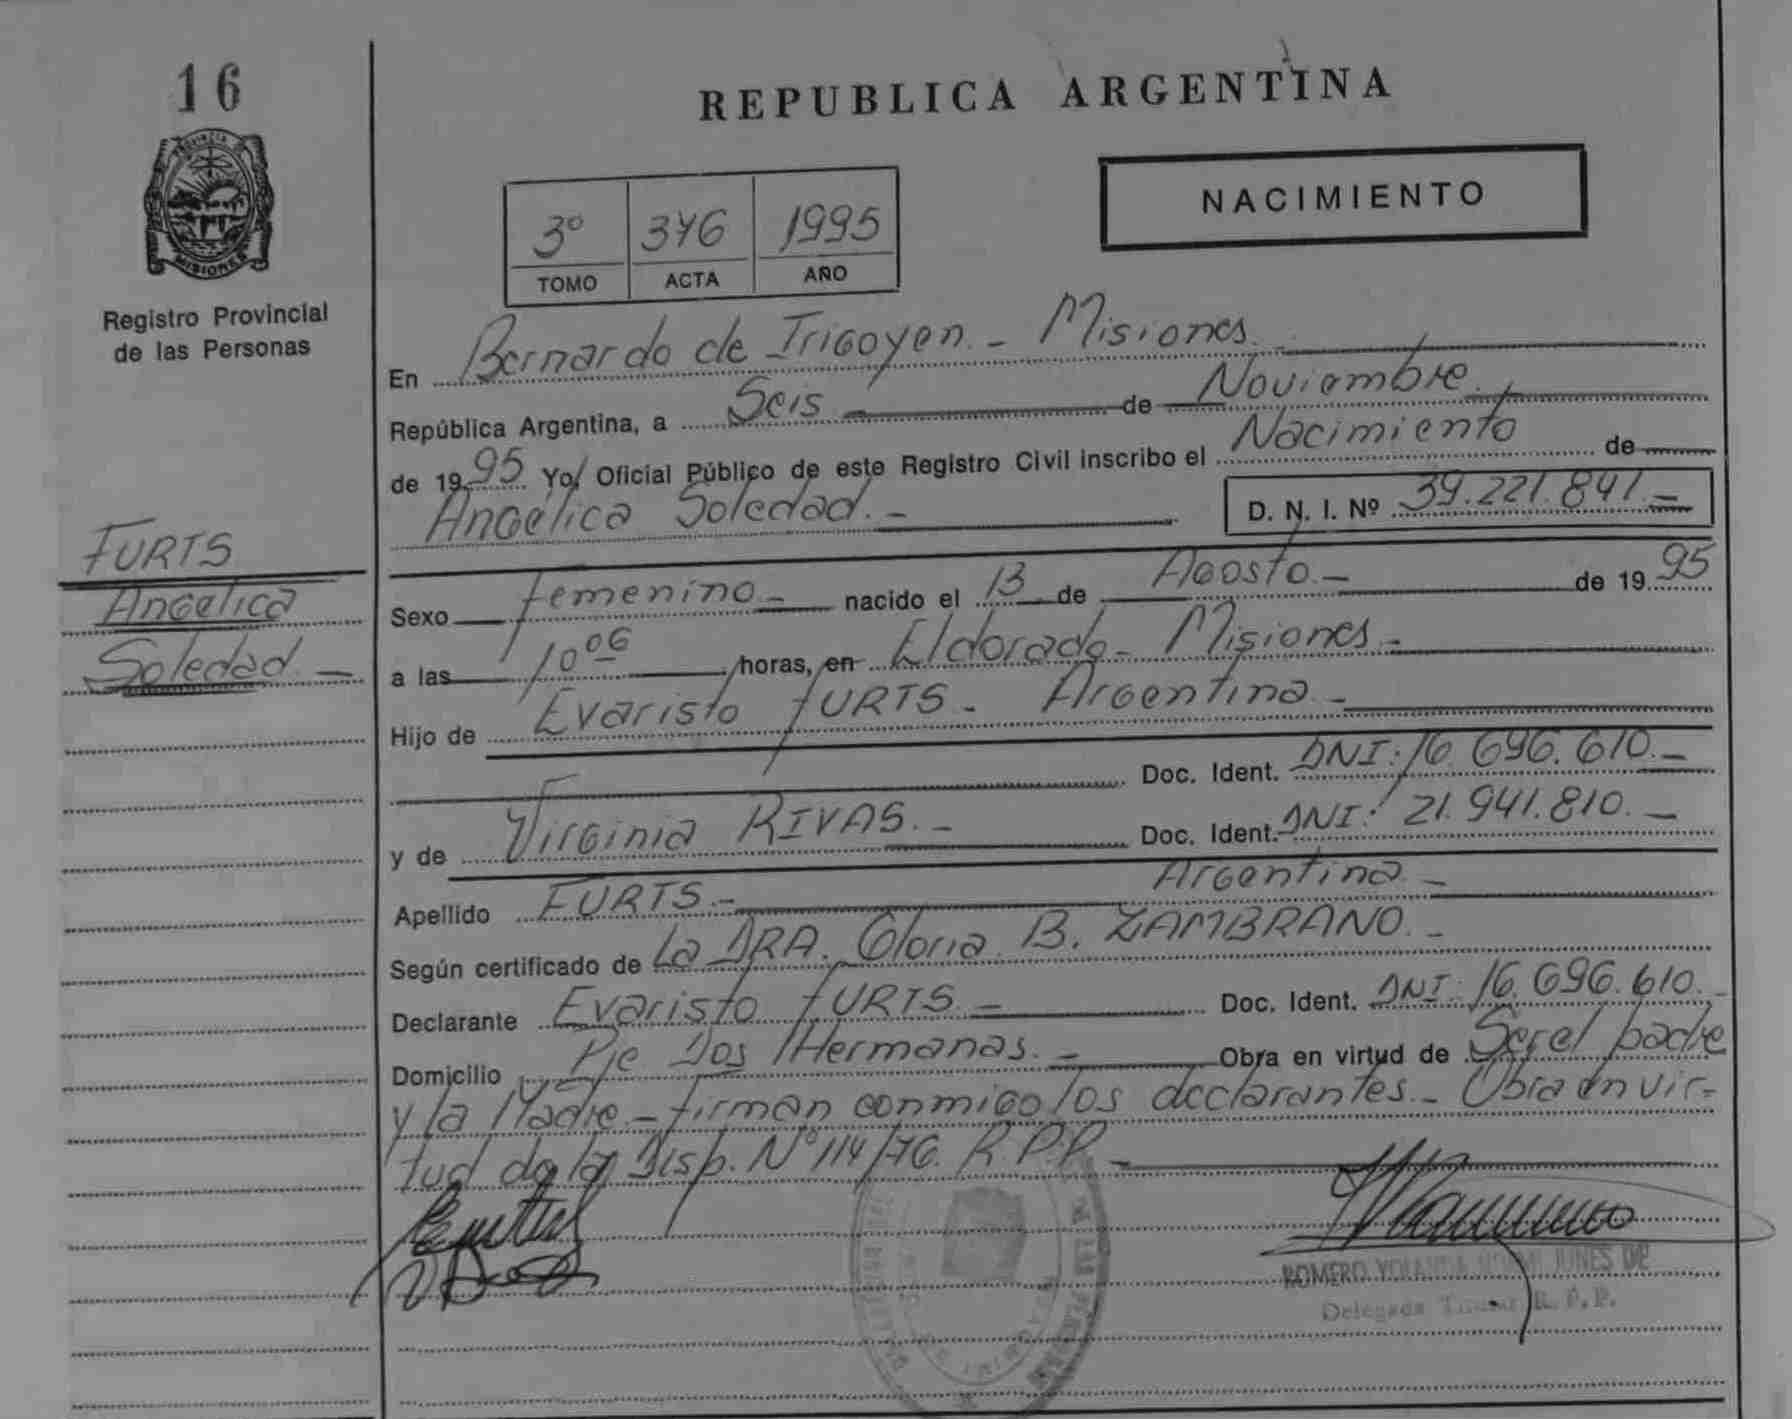 16
REPUBLICA ARGENTINA
NACIMIENTO
3º 376 1995
TOMO ACTA AÑO
MISIONES
Registro Provincial
de las Personas
En Bernardo de Irigoyen. - Misiones.
República Argentina, a Seis de Noviembre.
de 1995 Yo, Oficial Público de este Registro Civil inscribo el Nacimiento de
Angelica Soledad. - D. N. I. Nº 39.221.841. -
FURTS
Angelica
Soledad. -
Sexo femenino - nacido el 13 de Agosto. - de 1995
a las 10 06 horas, en Eldorado - Misiones. -
Hijo de Evaristo FURTS - Argentina. -
Doc. Ident. DNI: 16.696.610. -
y de Virginia RIVAS. - Doc. Ident. DNI: 21.941.810. -
Apellido FURTS. - Argentina -
Según certificado de La DRA. Gloria B. ZAMBRANO. -
Declarante Evaristo FURTS. - Doc. Ident. DNI: 16.696.610. -
Domicilio Pje Dos Hermanas. - Obra en virtud de Ser el padre
y la Madre - firman conmigo los declarantes. - Obra en vir-
tud de la Disp. Nº 114/76. R.P.P. -
ROMERO YOLANDA NOEMI JUNES DE
Delegada Titular R. P. P.